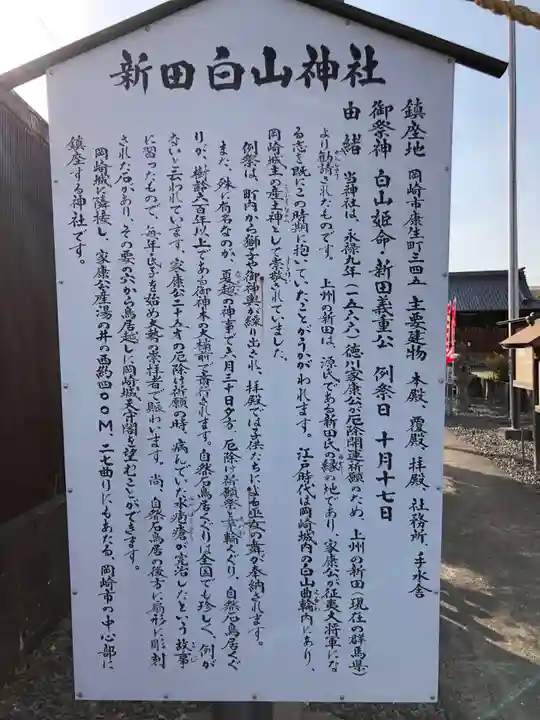 新田白山神社
鎮座地 岡崎市康生町三四五 主要建物 本殿、覆殿、拝殿、社務所、手水舎
御祭神 白山姫命・新田義重公 例祭日 十月十七日
由緒 当神社は、永禄九年(一五六六)徳川家康公が厄除開運祈願のため、上州の新田(現在の群馬県)
より勧請されたものです。上州の新田は、源氏である新田氏の縁の地であり、家康公が征夷大将軍にな
る志を既にこの時期に抱いていたことがうかがわれます。江戸時代は岡崎城内の白山曲輪内にあり、
岡崎城主の産土神として孝敬されていました。
例祭は、町内から獅子や御神輿が繰り出され、拝殿では子供たちによる巫女の舞が奉納されます。
また、殊に有名なのが、夏越の神事で六月三十日夕方、厄除け祈願祭、茅の輪くぐり、自然石鳥居くぐ
りが、樹齢六百年以上である御神木の大楠前で斎行されます。自然石鳥居くぐりは全国でも珍しく、例が
ないと云われています。家康公二十五才の厄除け祈願の時、病んでいた水疱瘡が完治したという故事
に習ったもので、毎年氏子を始め大勢の崇拝者で賑わいます。尚、自然石鳥居の後方に扇形に彫刻
された石があり、その要の穴から鳥居越しに岡崎城天守閣を望むことができます。
岡崎城に隣接し、家康公産湯の井の西約四〇〇M、二七曲りにもあたる、岡崎市の中心部に
鎮座する神社です。